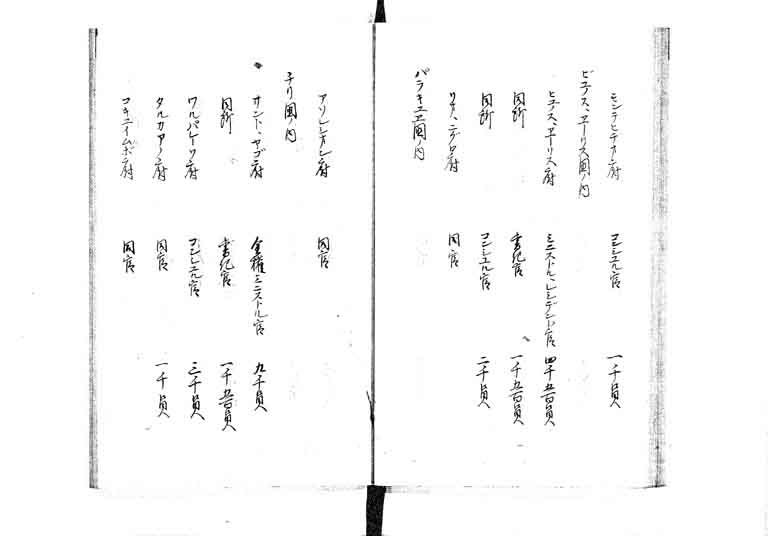 モンテヒデオン府 コンシユル官 一千員
ビヱノス、ヱーリス國ノ内
ヒヱノス、ヱーリス府 ミニストル、レシデント官 四千五百員
同所 書紀官 一千五百員
同所 コンシユル官 二千員
同官
パラキユエ國ノ内
アソムレオン府 同官
チリ國ノ内
サント、ヤゴ府 全權ミニストル官 九千員
同所 書紀官 一千五百員
ワルパレーソ府 コンシユル官 三千員
タルカアノ府 同官 一千員
コキイムボ府 同官